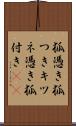 狐憑き狐
つきキツ
ネ憑き狐
付き